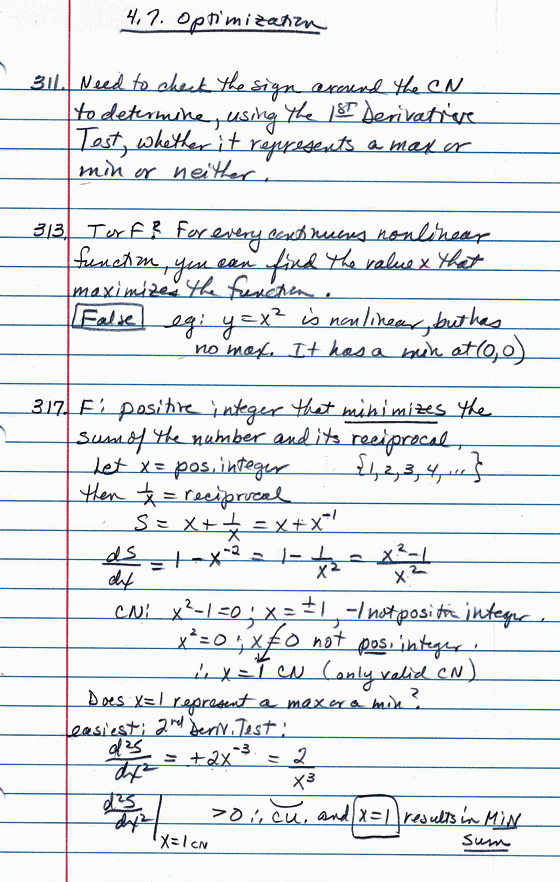 4.7. Optimization
311. Need to check the sign around the CN
to determine, using the 1ST Derivative
Test, whether it represents a max or
min or neither.
313. T or F? For every continuous nonlinear
function, you can find the value x that
maximizes the function.
False eg: y = x² is nonlinear, but has
no max. It has a min at (0,0)
317. F: positive integer that minimizes the
sum of the number and its reciprocal.
Let x = pos. integer {1, 2, 3, 4, ...}
then 1/x = reciprocal
S = x + 1/x = x + x⁻¹
dS/dx = 1 - x⁻² = 1 - 1/x² = x²-1/x²
CN: x²-1=0; x = ±1, -1 not positive integer.
x²=0; x≠0 not pos. integer.
∴ x = 1 CN (only valid CN)
Does x=1 represent a max or a min?
easiest: 2nd Deriv. Test:
d²S/dx² = +2x⁻³ = 2/x³
d²S/dx² | x=1 CN > 0 ∴ CU. and x=1 results in MIN
sum